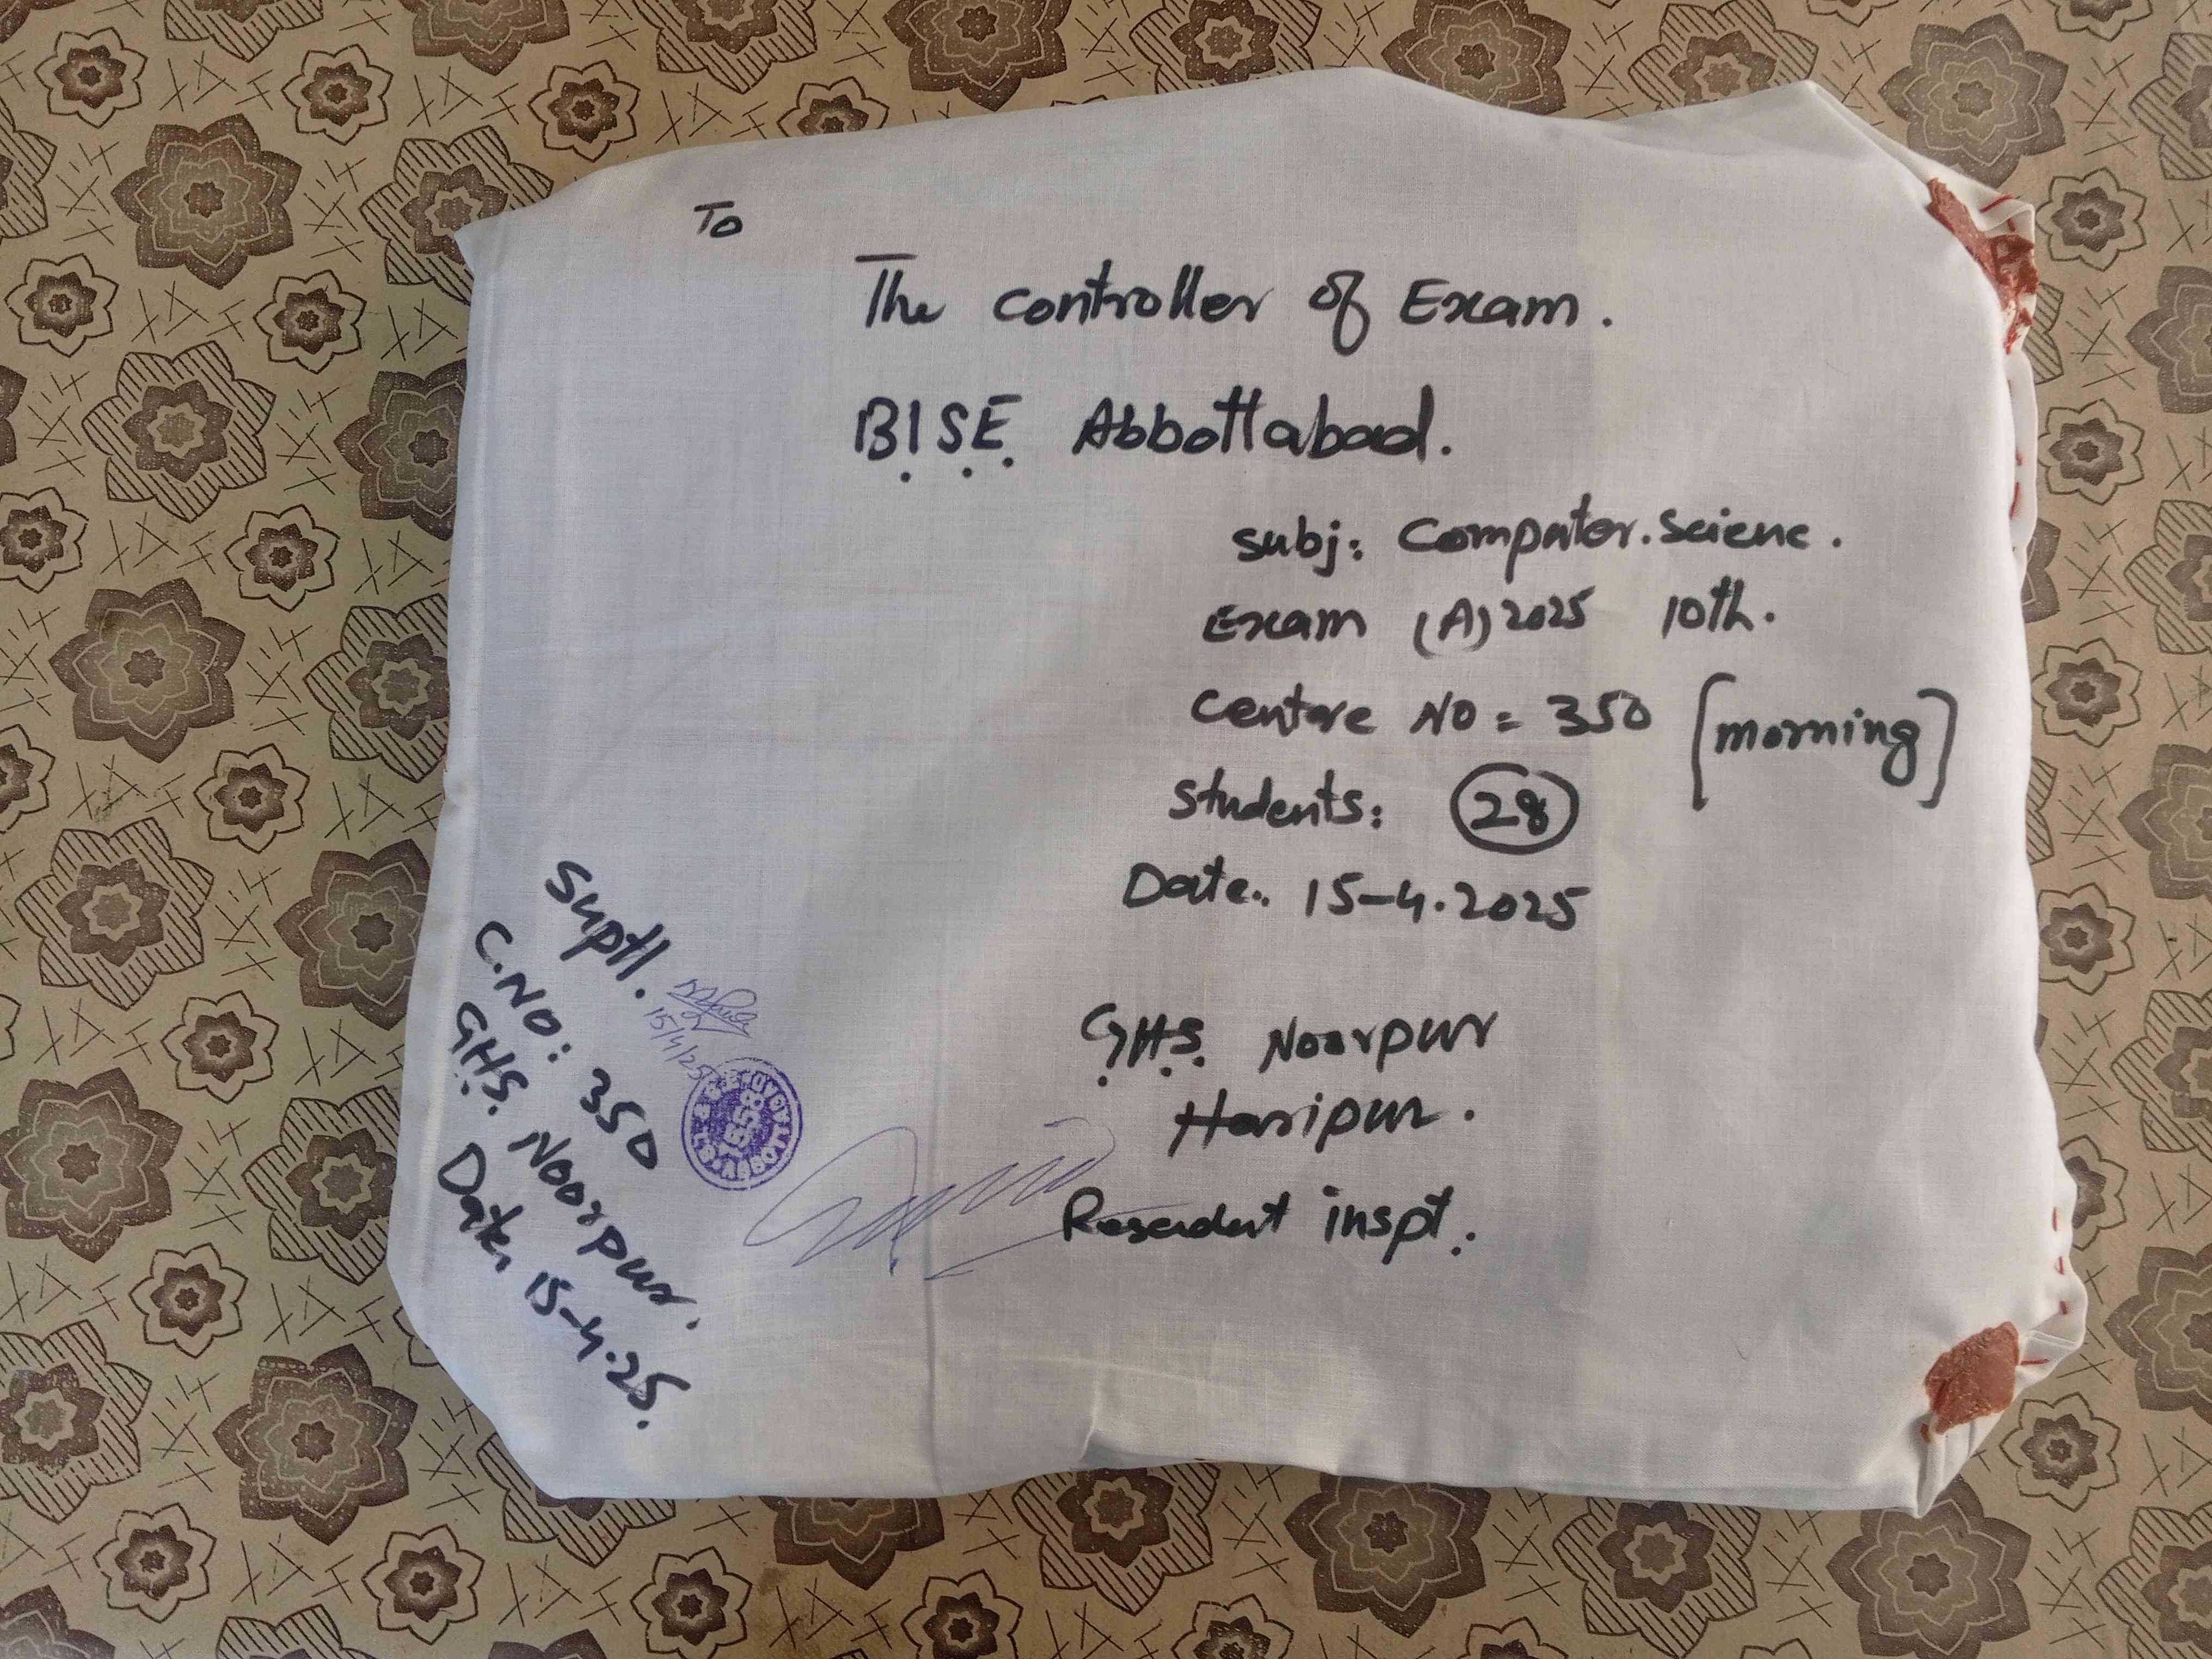 To
The controller of Exam.
B.I.S.E. Abbottabad.
subj: Computer. Scienc.
Exam (A) 2025 10th.
Centre NO = 350 [morning]
Students: 28
Date.. 15-4.2025
G.H.S. Noorpur
Haripur.
Resendent inspt.
Suptt.
15/4/25
C.NO: 350
G.H.S. Noorpur.
Date, 15-4.25.